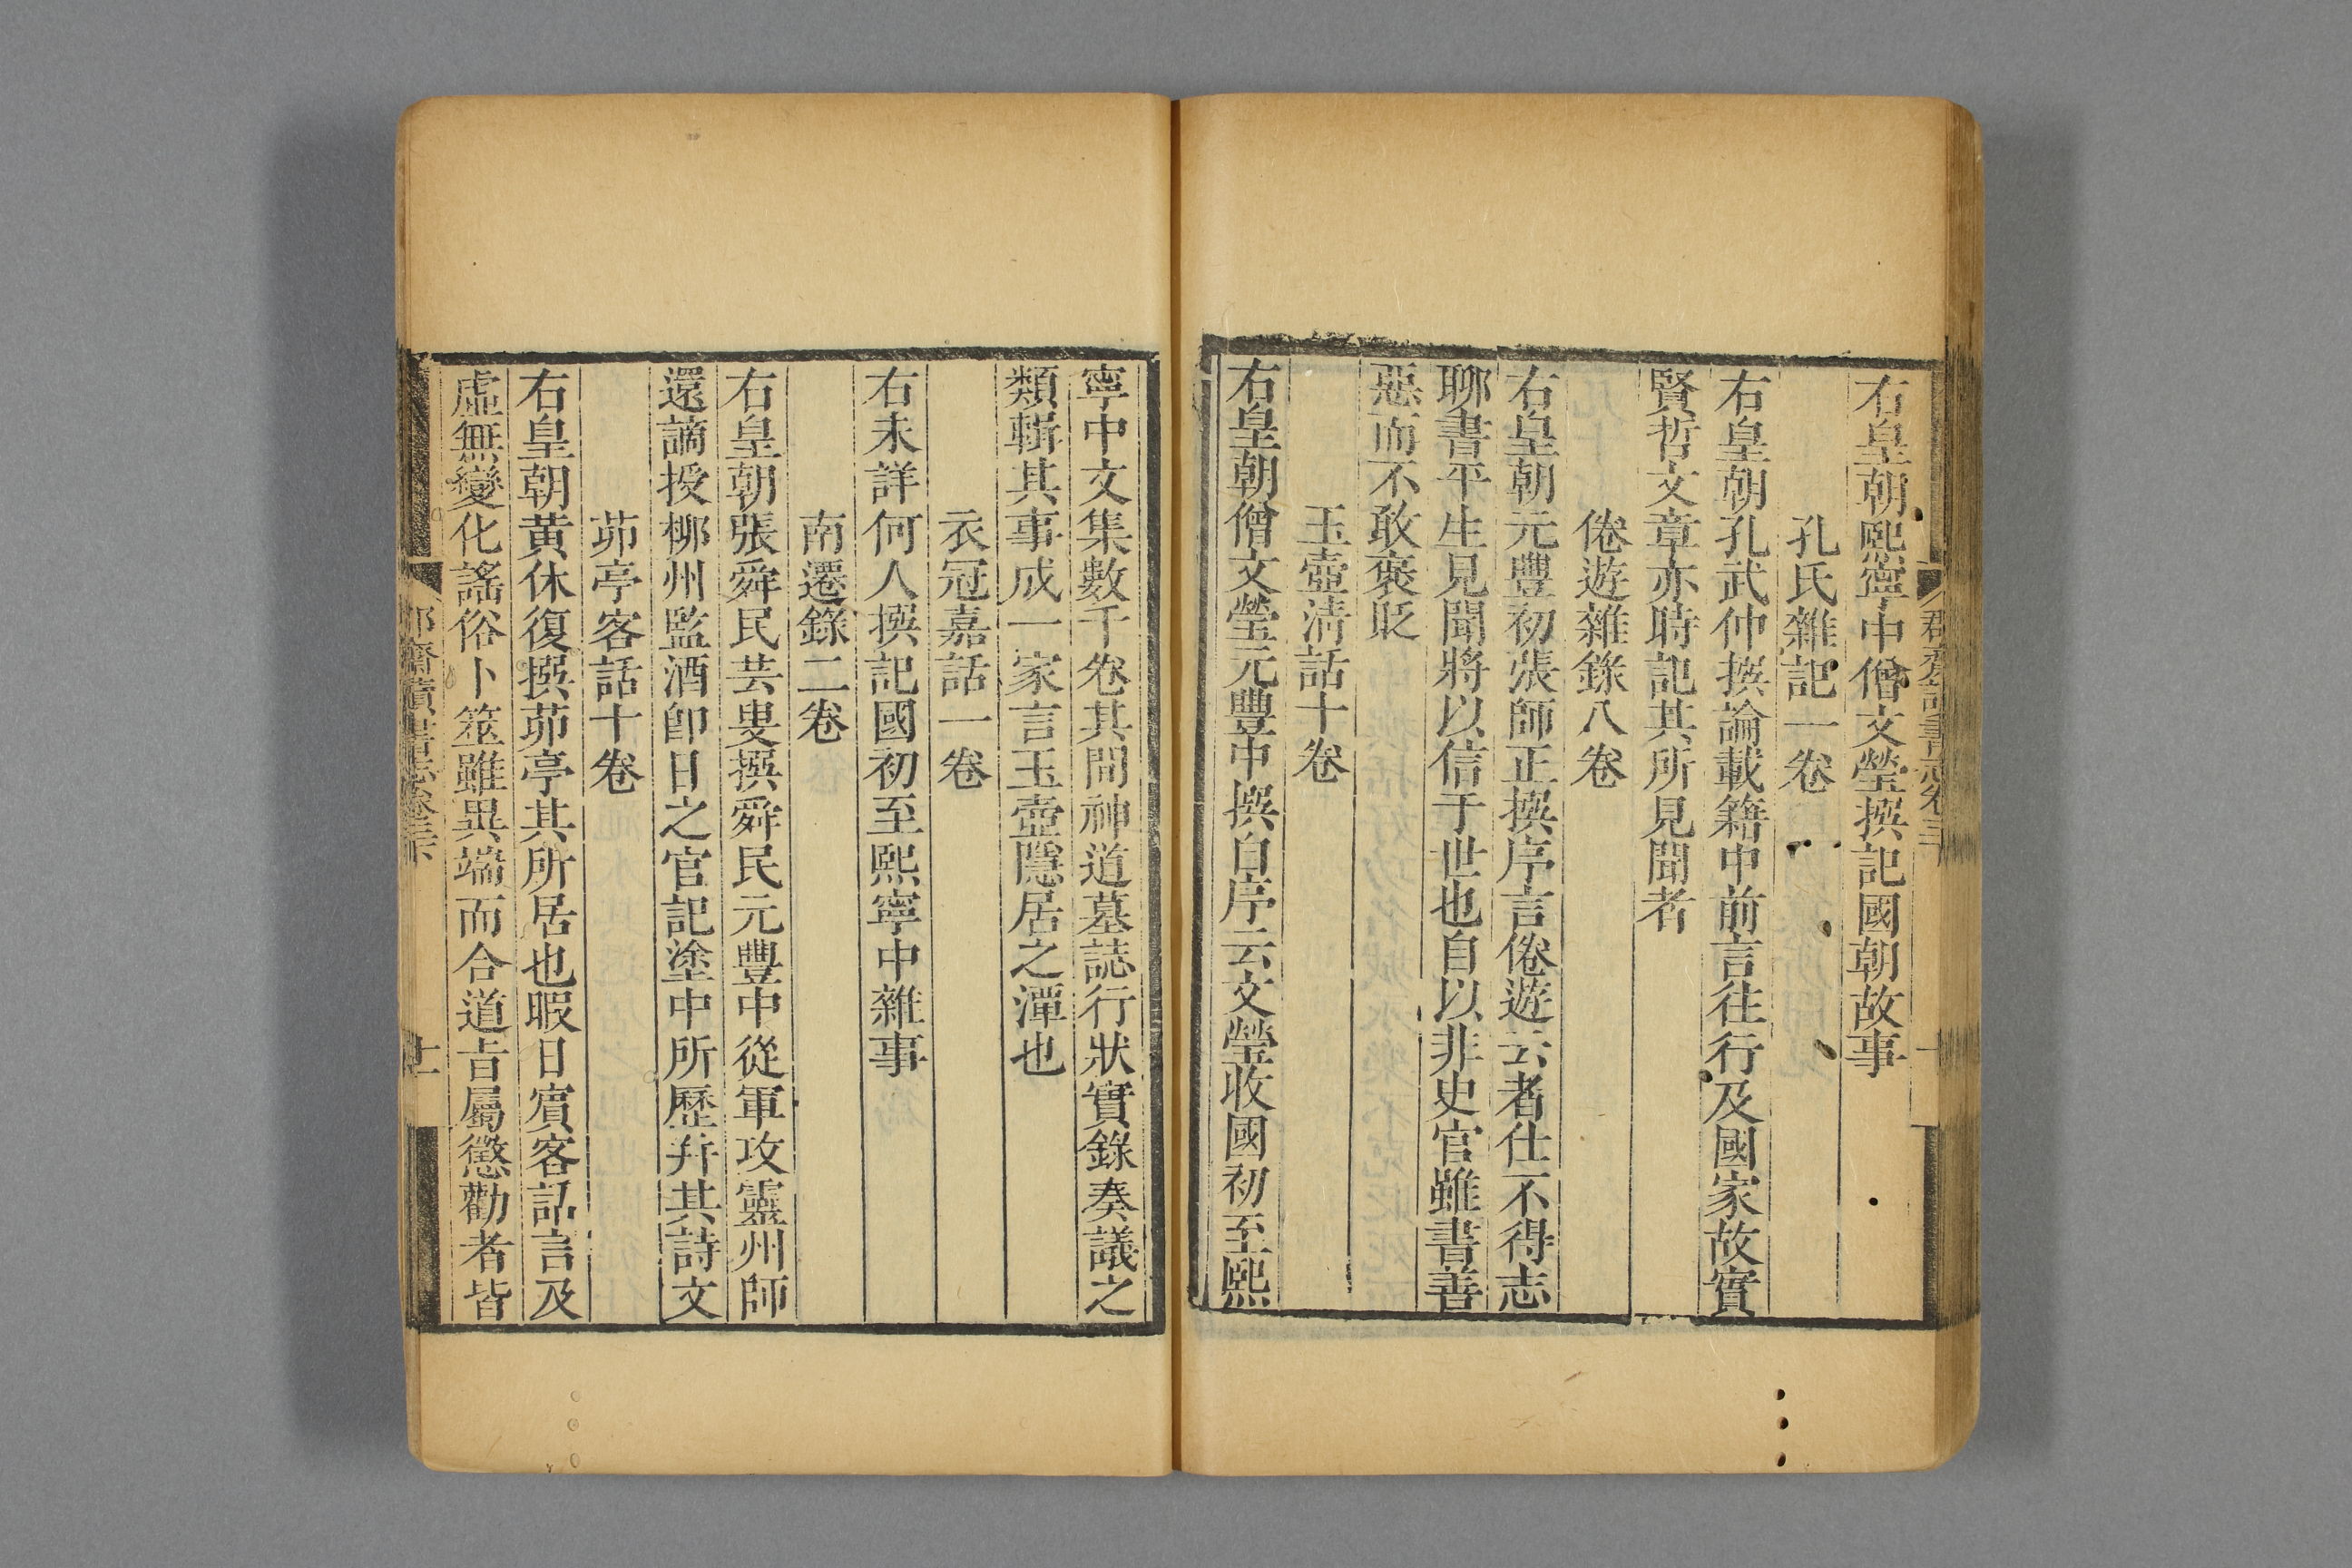 右皇朝熙寧中僧文瑩撰記國朝故事
孔氏雜記一卷
右皇朝孔武仲撰論載籍中前言往行及國家故實
賢哲文章亦時記其所見聞者
倦遊雜錄八卷
右皇朝元豐初張師正撰序言倦遊云者仕不得志
聊書平生見聞將以信于世也自以非史官雖書善
惡而不敢褒貶
玉壺淸話十卷
右皇朝僧文瑩元豐中撰自序云文瑩收國初至熙
寧中文集數千卷其間神道墓誌行狀實錄奏議之
類輯其事成一家言玉壺隱居之潭也
衣冠嘉話一卷
右未詳何人撰記國初至熙寧中雜事
南遷錄二卷
右皇朝張舜民芸叟撰舜民元豐中從軍攻靈州師
還謫授郴州監酒卽日之官記塗中所歷幷其詩文
茆亭客話十卷
右皇朝黃休復撰茆亭其所居也暇日賓客話言及
虛無變化謠俗卜筮雖異端而合道旨屬懲勸者皆